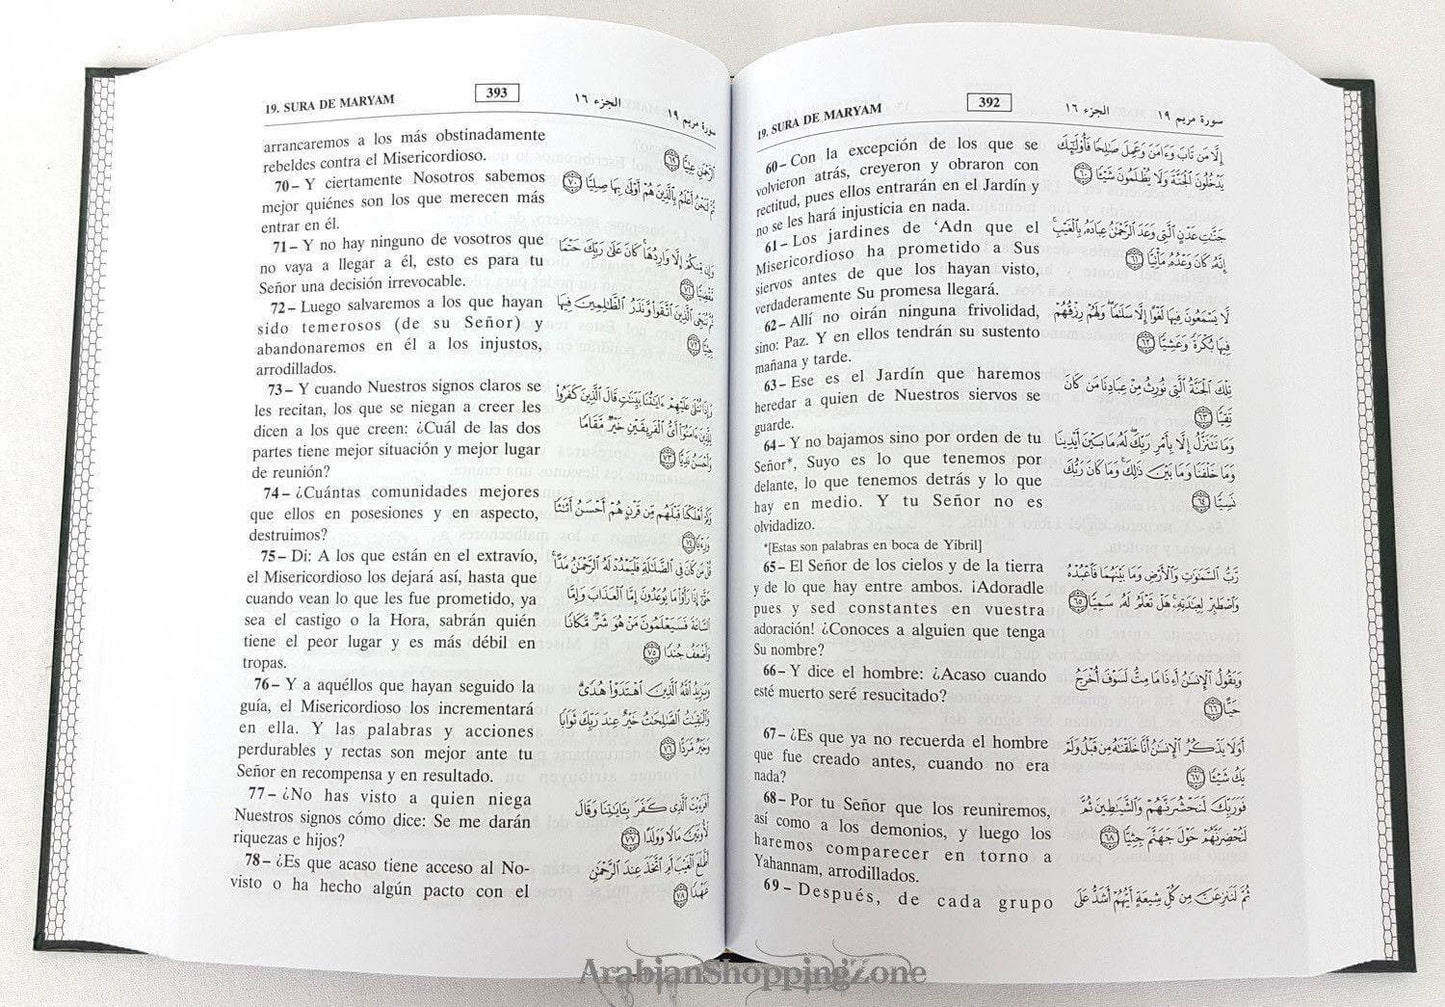 19. SURA DE MARYAM
392
الجزء ١٦
سورة مريم ١٩
60 – Con la excepción de los que se
volvieron atrás, creyeron y obraron con
rectitud, pues ellos entrarán en el Jardín y
no se les hará injusticia en nada.
61 – Los jardines de ‘Adn que el
Misericordioso ha prometido a Sus
siervos antes de que los hayan visto,
verdaderamente Su promesa llegará.
62 – Allí no oirán ninguna frivolidad,
sino: Paz. Y en ellos tendrán su sustento
mañana y tarde.
63 – Ese es el Jardín que haremos
heredar a quien de Nuestros siervos se
guarde.
64 – Y no bajamos sino por orden de tu
Señor*, Suyo es lo que tenemos por
delante, lo que tenemos detrás y lo que
hay en medio. Y tu Señor no es
olvidadizo.
*[Estas son palabras en boca de Yibril]
65 – El Señor de los cielos y de la tierra
y de lo que hay entre ambos. ¡Adoradle
pues y sed constantes en vuestra
adoración! ¿Conoces a alguien que tenga
Su nombre?
66 – Y dice el hombre: ¿Acaso cuando
esté muerto seré resucitado?
67 – ¿Es que ya no recuerda el hombre
que fue creado antes, cuando no era
nada?
68 – Por tu Señor que los reuniremos,
así como a los demonios, y luego los
haremos comparecer en torno a
Yahannam, arrodillados.
69 – Después, de cada grupo
إِلَّا مَن تَابَ وَءَامَنَ وَعَمِلَ صَـٰلِحًا فَأُو۟لَـٰٓئِكَ
يَدْخُلُونَ ٱلْجَنَّةَ وَلَا يُظْلَمُونَ شَيْـًٔا ٦٠
جَنَّـٰتِ عَدْنٍ ٱلَّتِى وَعَدَ ٱلرَّحْمَـٰنُ عِبَادَهُۥ بِٱلْغَيْبِ ۚ
إِنَّهُۥ كَانَ وَعْدُهُۥ مَأْتِيًّا ٦١
لَّا يَسْمَعُونَ فِيهَا لَغْوًا إِلَّا سَلَـٰمًا ۖ وَلَهُمْ رِزْقُهُمْ
فِيهَا بُكْرَةً وَعَشِيًّا ٦٢
تِلْكَ ٱلْجَنَّةُ ٱلَّتِى نُورِثُ مِنْ عِبَادِنَا مَن كَانَ
تَقِيًّا ٦٣
وَمَا نَتَنَزَّلُ إِلَّا بِأَمْرِ رَبِّكَ ۖ لَهُۥ مَا بَيْنَ أَيْدِينَا
وَمَا خَلْفَنَا وَمَا بَيْنَ ذَٰلِكَ ۚ وَمَا كَانَ رَبُّكَ
نَسِيًّا ٦٤
رَّبُّ ٱلسَّمَـٰوَٰتِ وَٱلْأَرْضِ وَمَا بَيْنَهُمَا فَٱعْبُدْهُ
وَٱصْطَبِرْ لِعِبَـٰدَتِهِۦ ۚ هَلْ تَعْلَمُ لَهُۥ سَمِيًّا ٦٥
وَيَقُولُ ٱلْإِنسَـٰنُ أَءِذَا مَا مِتُّ لَسَوْفَ أُخْرَجُ
حَيًّا ٦٦
أَوَلَا يَذْكُرُ ٱلْإِنسَـٰنُ أَنَّا خَلَقْنَـٰهُ مِن قَبْلُ وَلَمْ
يَكُ شَيْـًٔا ٦٧
فَوَرَبِّكَ لَنَحْشُرَنَّهُمْ وَٱلشَّيَـٰطِينَ ثُمَّ
لَنُحْضِرَنَّهُمْ حَوْلَ جَهَنَّمَ جِثِيًّا ٦٨
ثُمَّ لَنَنزِعَنَّ مِن كُلِّ شِيعَةٍ أَيُّهُمْ أَشَدُّ عَلَى
19. SURA DE MARYAM
393
الجزء ١٦
سورة مريم ١٩
arrancaremos a los más obstinadamente
rebeldes contra el Misericordioso.
70 – Y ciertamente Nosotros sabemos
mejor quiénes son los que merecen más
entrar en él.
71 – Y no hay ninguno de vosotros que
no vaya a llegar a él, esto es para tu
Señor una decisión irrevocable.
72 – Luego salvaremos a los que hayan
sido temerosos (de su Señor) y
abandonaremos en él a los injustos,
arrodillados.
73 – Y cuando Nuestros signos claros se
les recitan, los que se niegan a creer les
dicen a los que creen: ¿Cuál de las dos
partes tiene mejor situación y mejor lugar
de reunión?
74 – ¿Cuántas comunidades mejores
que ellos en posesiones y en aspecto,
destruimos?
75 – Di: A los que están en el extravío,
el Misericordioso los dejará así, hasta que
cuando vean lo que les fue prometido, ya
sea el castigo o la Hora, sabrán quién
tiene el peor lugar y es más débil en
tropas.
76 – Y a aquéllos que hayan seguido la
guía, el Misericordioso los incrementará
en ella. Y las palabras y acciones
perdurables y rectas son mejor ante tu
Señor en recompensa y en resultado.
77 – ¿No has visto a quien niega
Nuestros signos cómo dice: Se me darán
riquezas e hijos?
78 – ¿Es que acaso tiene acceso al No-
visto o ha hecho algún pacto con el
ٱلرَّحْمَـٰنِ عِتِيًّا ٦٩
ثُمَّ لَنَحْنُ أَعْلَمُ بِٱلَّذِينَ هُمْ أَوْلَىٰ بِهَا صِلِيًّا ٧٠
وَإِن مِّنكُمْ إِلَّا وَارِدُهَا ۚ كَانَ عَلَىٰ رَبِّكَ حَتْمًا
مَّقْضِيًّا ٧١
ثُمَّ نُنَجِّى ٱلَّذِينَ ٱتَّقَوا۟ وَّنَذَرُ ٱلظَّـٰلِمِينَ فِيهَا
جِثِيًّا ٧٢
وَإِذَا تُتْلَىٰ عَلَيْهِمْ ءَايَـٰتُنَا بَيِّنَـٰتٍ قَالَ ٱلَّذِينَ كَفَرُوا۟
لِلَّذِينَ ءَامَنُوٓا۟ أَىُّ ٱلْفَرِيقَيْنِ خَيْرٌ مَّقَامًا
وَأَحْسَنُ نَدِيًّا ٧٣
وَكَمْ أَهْلَكْنَا قَبْلَهُم مِّن قَرْنٍ هُمْ أَحْسَنُ أَثَـٰثًا
وَرِءْيًا ٧٤
قُلْ مَن كَانَ فِى ٱلضَّلَـٰلَةِ فَلْيَمْدُدْ لَهُ ٱلرَّحْمَـٰنُ مَدًّا ۚ
حَتَّىٰٓ إِذَا رَأَوْا۟ مَا يُوعَدُونَ إِمَّا ٱلْعَذَابَ وَإِمَّا
ٱلسَّاعَةَ فَسَيَعْلَمُونَ مَنْ هُوَ شَرٌّ مَّكَانًا
وَأَضْعَفُ جُندًا ٧٥
وَيَزِيدُ ٱللَّهُ ٱلَّذِينَ ٱهْتَدَوْا۟ هُدًى ۗ
وَٱلْبَـٰقِيَـٰتُ ٱلصَّـٰلِحَـٰتُ خَيْرٌ عِندَ رَبِّكَ ثَوَابًا
وَخَيْرٌ مَّرَدًّا ٧٦
أَفَرَءَيْتَ ٱلَّذِى كَفَرَ بِـَٔايَـٰتِنَا وَقَالَ
لَأُوتَيَنَّ مَالًا وَوَلَدًا ٧٧
أَطَّلَعَ ٱلْغَيْبَ أَمِ ٱتَّخَذَ عِندَ ٱلرَّحْمَـٰنِ
عَهْدًا ٧٨
ArabianShoppingZone